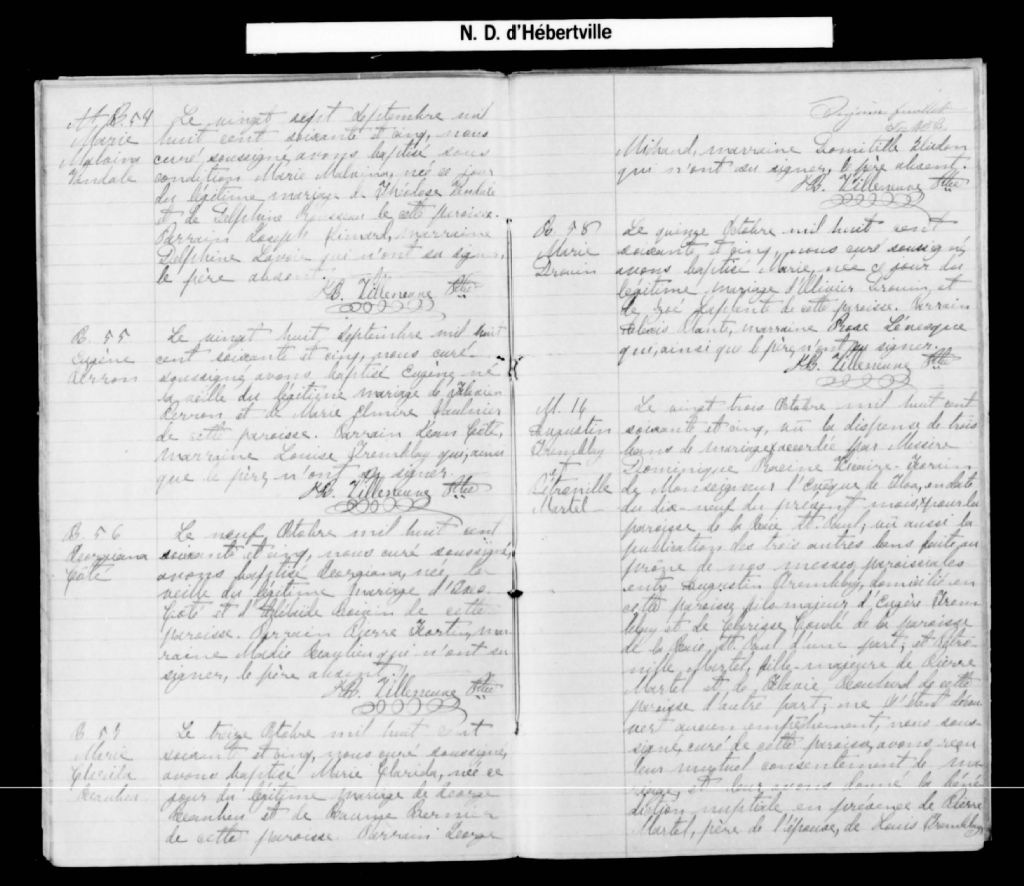 N. D. d'Hébertville
B. 54
Marie
Malvina
Vandale
Le vingt sept Septembre mil
huit cent soixante et cinq, nous
curé soussigné avons baptisé sous
condition Marie Malvina, née ce jour
du légitime mariage de Vandale
et de Delphine Rousseau de cette paroisse.
Parrain Joseph Simard, marraine
Delphine Lavoie qui n'ont su signer,
le père absent.
J.B. Villeneuve Ptre
B. 55
Eugène
Perron
Le vingt huit Septembre mil huit
cent soixante et cinq, nous curé
soussigné avons baptisé Eugène né
la veille du légitime mariage de
Perron et de Marie Elmire
de cette paroisse. Parrain Jean Côté,
marraine Louise Tremblay qui, ainsi
que le père n'ont su signer.
J.B. Villeneuve Ptre
B. 56
Georgiana
Côté
Le neuf Octobre mil huit cent
soixante et cinq, nous curé soussigné,
avons baptisé Georgiana, née la
veille du légitime mariage d'
Côté et d'Adélaide de cette
paroisse. Parrain Pierre Fortin, mar
raine qui n'ont su
signer, le père absent.
J.B. Villeneuve Ptre
B. 57
Marie
Le treize Octobre mil huit cent
soixante et cinq, nous curé soussigné,
avons baptisé Marie Clarida, née ce
jour du légitime mariage de George
et de
de cette paroisse. Parrain George
feuillet
Michaud, marraine Domitille
qui n'ont su signer, le père absent.
J.B. Villeneuve Ptre
B. 58
Marie
Drouin
Le quinze Octobre mil huit cent
soixante et cinq, nous curé soussigné,
avons baptisé Marie, née ce jour du
légitime mariage d'Olivier Drouin, et
de Zoé de cette paroisse. Parrain
Alexis Plante, marraine Rose Lévesque
qui, ainsi que le père n'ont pu signer.
J.B. Villeneuve Ptre
M. 16
Augustin
Tremblay
et
Pétronille
Martel
Le vingt trois Octobre mil huit cent
soixante et cinq, vu la dispense de trois
bans de mariage accordée par Messire
Dominique Racine Vicaire-Forain
de Monseigneur l'Evêque de Tloa, en date
du dix-neuf du présent mois, pour la
paroisse de la Baie St. Paul, vu aussi la
publication des trois autres bans faite au
prône de nos messes paroissiales
entre Augustin Tremblay, domicilié en
cette paroisse, fils majeur d'Eugère Trem
blay et de de la paroisse
de la Baie St. Paul d'une part; et Pétro
nille Martel, fille majeure de Pierre
Martel et de Flavie de cette
paroisse d'autre part; ne s'étant décou
vert aucun empêchement, nous sous-
signé, curé de cette paroisse, avons reçu
leur mutuel consentement de ma
riage, et leur avons donné la béné
diction nuptiale en présence de Pierre
Martel, père de l'épouse, de Louis Tremblay,